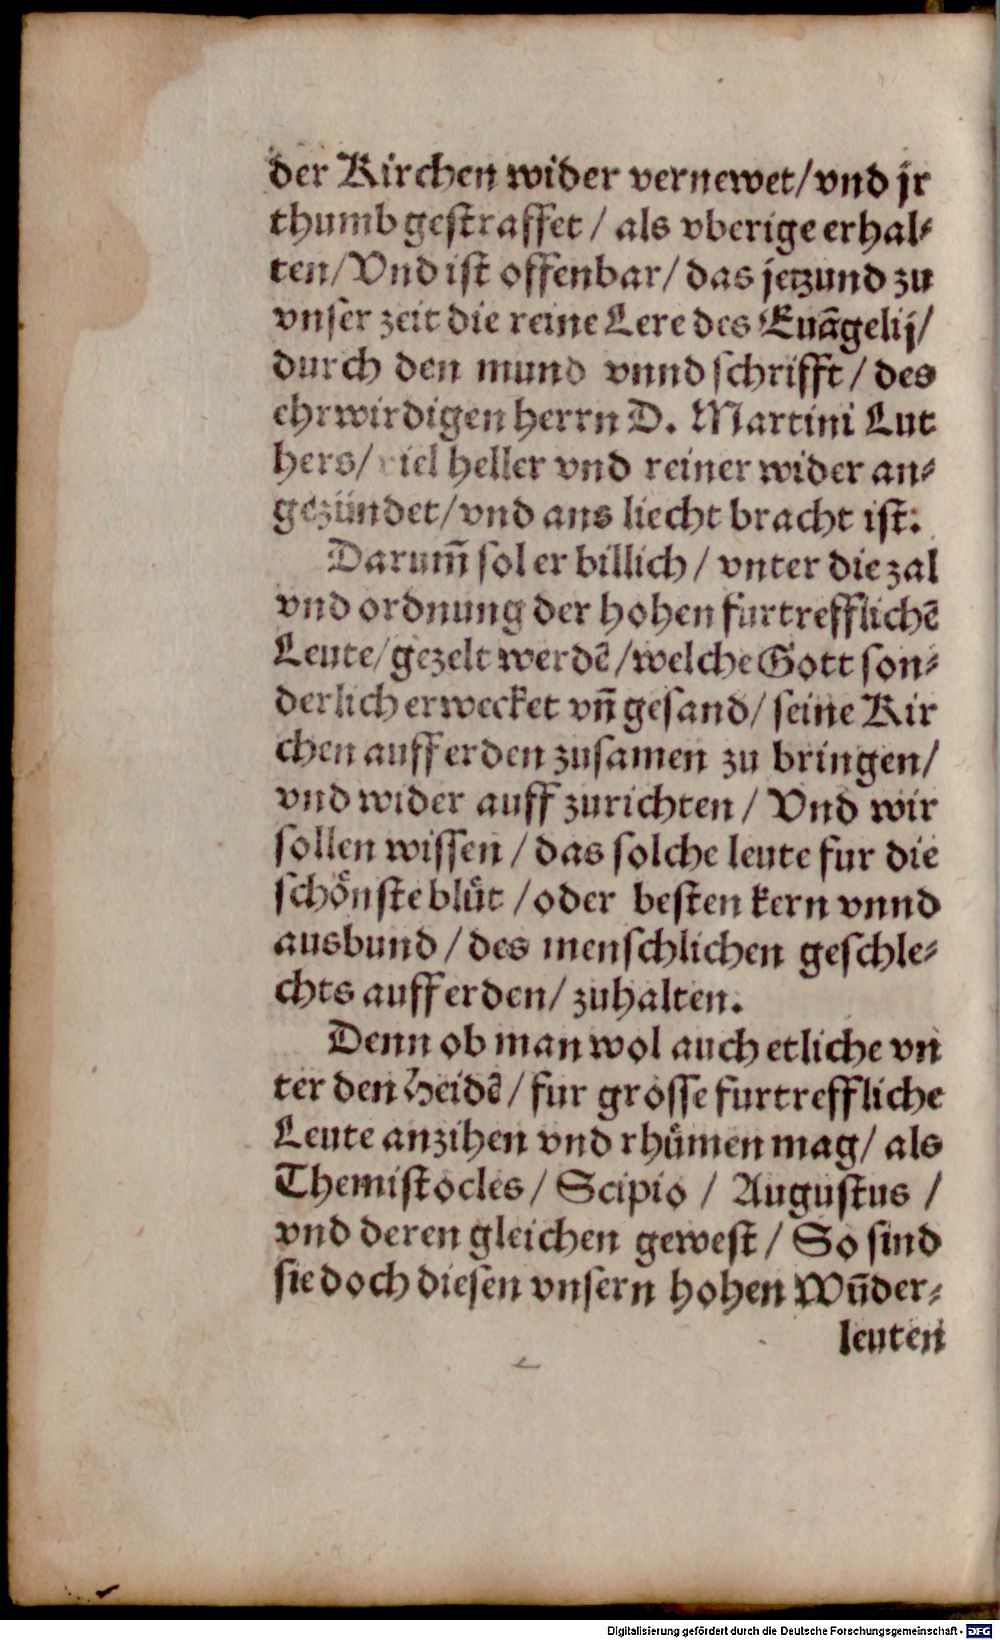 der Kirchen wider vernewet/ vnd jr
thumb gestraffet / als vberige erhal⸗
ten/ Vnd ist offenbar/ das jetzund zu
vnser zeit die reine Lere des Euãgelij/
durch den mund vnnd schrifft / des
ehrwirdigen herrn D. Martini Lut
hers/ viel heller vnd reiner wider an⸗
gezündet/ vnd ans liecht bracht ist.
Darum̃ sol er billich / vnter die zal
vnd ordnung der hohen furtrefflichẽ
Leute/ gezelt werdẽ / welche Gott son⸗
derlich erwecket vñ gesand/ seine Kir
chen auff erden zusamen zu bringen/
vnd wider auff zurichten / Vnd wir
sollen wissen / das solche leute fur die
schoͤnste bluͤt / oder besten kern vnnd
ausbund / des menschlichen geschle⸗
chts auff erden/ zuhalten.
Denn ob man wol auch etliche vn
ter den Heidẽ / fur grosse furtreffliche
Leute anzihen vnd rhuͤmen mag/ als
Themistocles / Scipio / Augustus /
vnd deren gleichen gewest / So sind
sie doch diesen vnsern hohen Wũder⸗
leuten
Digitalisierung gefördert durch die Deutsche Forschungsgemeinschaft - DFG